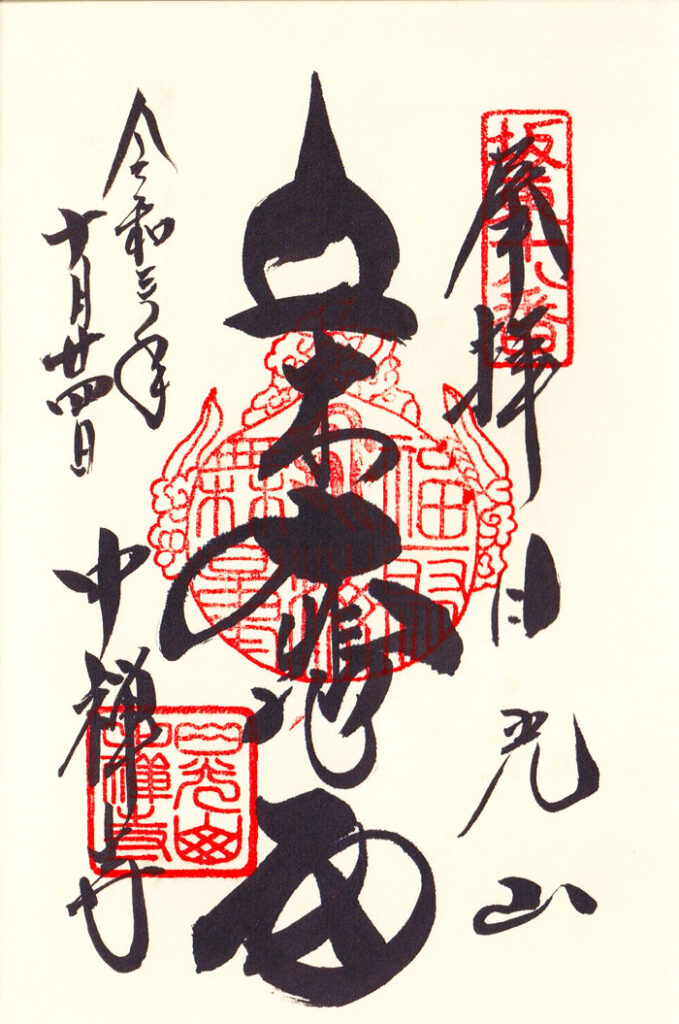 坂東十八番
奉拝 日光山
立木
福聚海無量
令和三年
十月廿四日
中禅寺
日光山
中禅寺